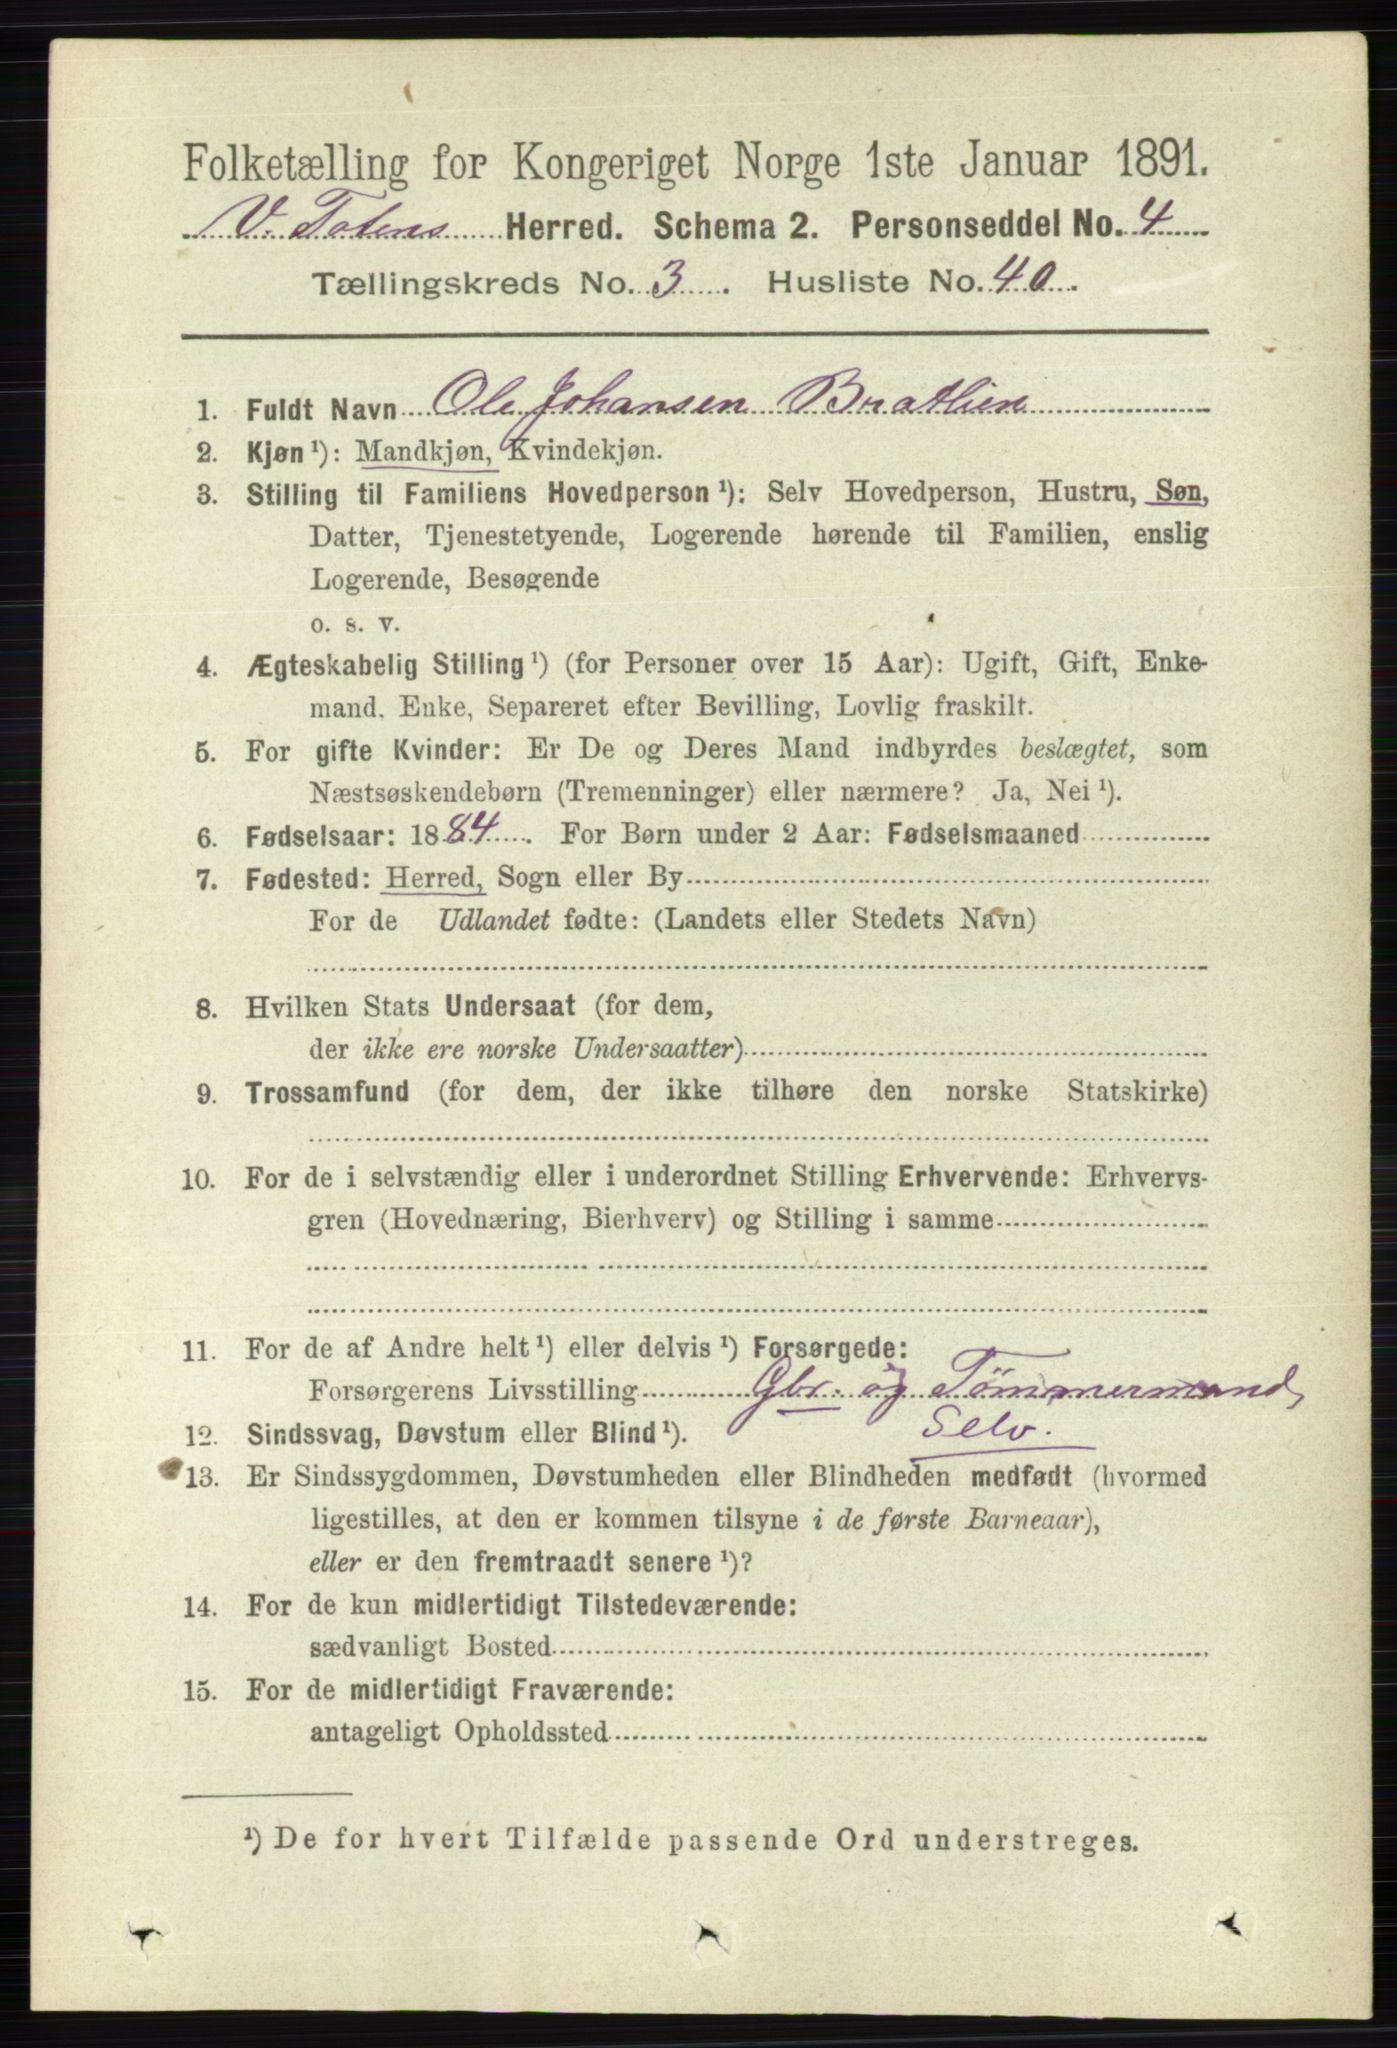 Folketælling for Kongeriget Norge 1ste Januar 1891.
V. Totens Herred. Schema 2. Personseddel No. 4
Tællingskreds No. 3. Husliste No. 40.
1. Fuldt Navn Ole Johansen Brathien
2. Kjøn ¹): Mandkjøn, Kvindekjøn.
3. Stilling til Familiens Hovedperson ¹): Selv Hovedperson, Hustru, Søn,
Datter, Tjenestetyende, Logerende hørende til Familien, enslig
Logerende, Besøgende
o. s. v.
4. Ægteskabelig Stilling ¹) (for Personer over 15 Aar): Ugift, Gift, Enke-
mand, Enke, Separeret efter Bevilling, Lovlig fraskilt.
5. For gifte Kvinder: Er De og Deres Mand indbyrdes beslægtet, som
Næstsøskendebørn (Tremenninger) eller nærmere? Ja, Nei ¹).
6. Fødselsaar: 1884. For Børn under 2 Aar: Fødselsmaaned
7. Fødested: Herred, Sogn eller By
For de Udlandet fødte: (Landets eller Stedets Navn)
8. Hvilken Stats Undersaat (for dem,
der ikke ere norske Undersaatter)
9. Trossamfund (for dem, der ikke tilhøre den norske Statskirke)
10. For de i selvstændig eller i underordnet Stilling Erhvervende: Erhvervs-
gren (Hovednæring, Bierhverv) og Stilling i samme
11. For de af Andre helt ¹) eller delvis ¹) Forsørgede:
Forsørgerens Livsstilling Gbr. og Tömmermand,
Selv.
12. Sindssvag, Døvstum eller Blind ¹).
13. Er Sindssygdommen, Døvstumheden eller Blindheden medfødt (hvormed
ligestilles, at den er kommen tilsyne i de første Barneaar),
eller er den fremtraadt senere ¹)?
14. For de kun midlertidigt Tilstedeværende:
sædvanligt Bosted
15. For de midlertidigt Fraværende:
antageligt Opholdssted
¹) De for hvert Tilfælde passende Ord understreges.